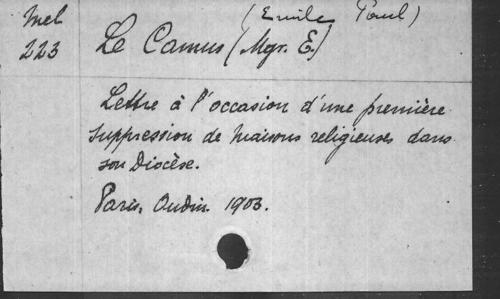 Mel (Emile Paul)
223 Le Camus (Mgr. E.)
Lettre à l'occasion d'une première
suppression de maisons religieuses dans
son Diocèse.
Paris, Oudin. 1903.